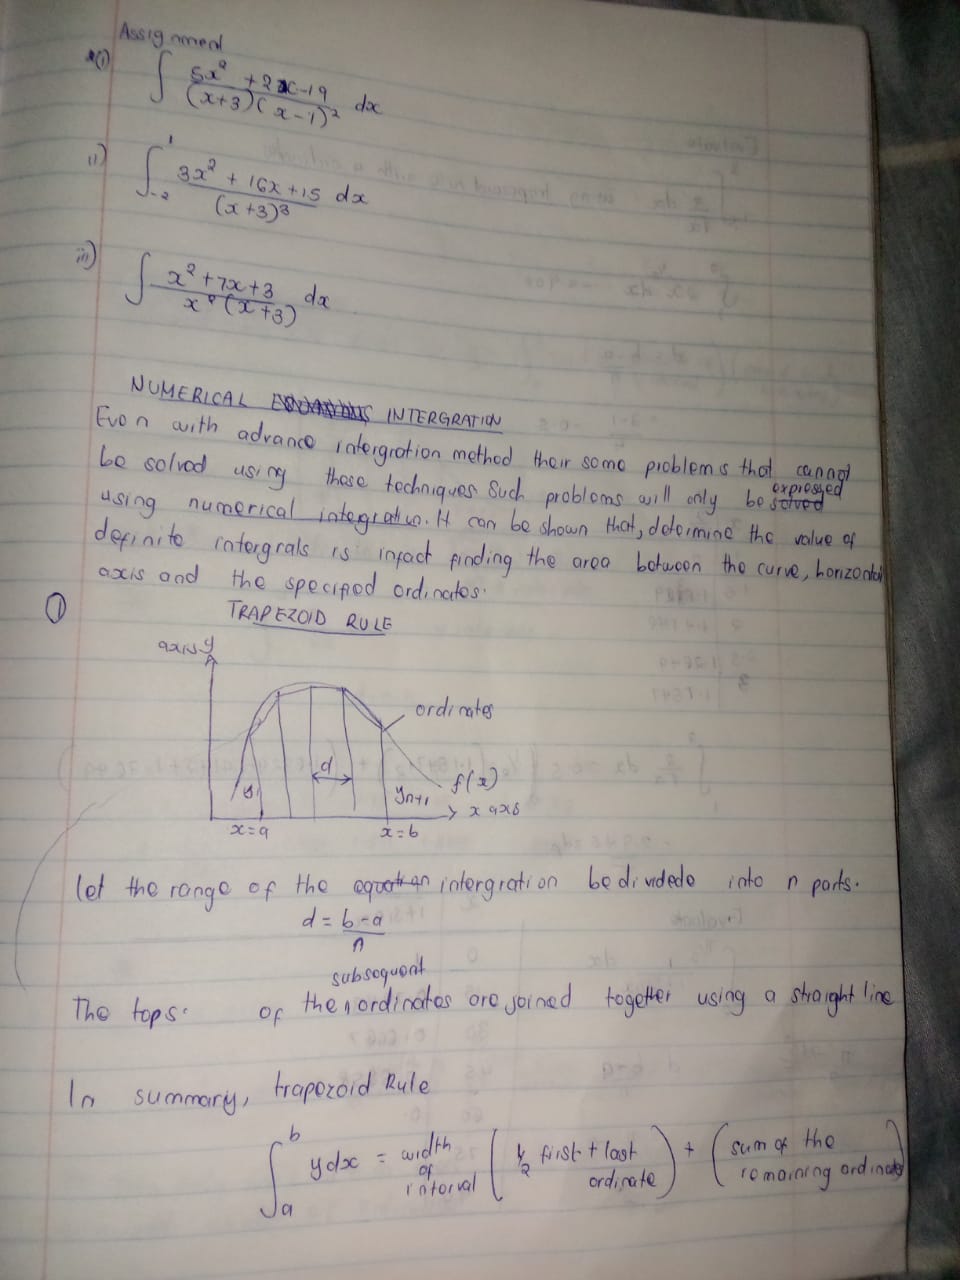 Assignment
(i) ∫ 5x² + 2x - 19 / (x+3)(x-1)² dx
ii) ∫₋₂¹ 3x² + 16x + 15 / (x+3)³ dx
iii) ∫ x² + 7x + 3 / x² (x+3) dx
NUMERICAL INTERGRATION
Even with advance intergration method their some problems that cannot
be solved using these techniques Such problems will only be expressed
using numerical integration. It can be shown that, determine the value of
definite intergrals is infact finding the area between the curve, horizontal
axis and the specified ordinates.
① TRAPEZOID RULE
axis y
ordinates
d
f(x)
y₁
yn+1
x axis
x=a
x=b
let the range of the intergration be dividede into n parts.
d = b-a / n
subsequent
The tops of the ordinates are joined together using a straight line
In summary, trapezoid Rule
∫ₐᵇ ydx = width of interval (½ first + last ordinate) + (sum of the remaining ordinates)